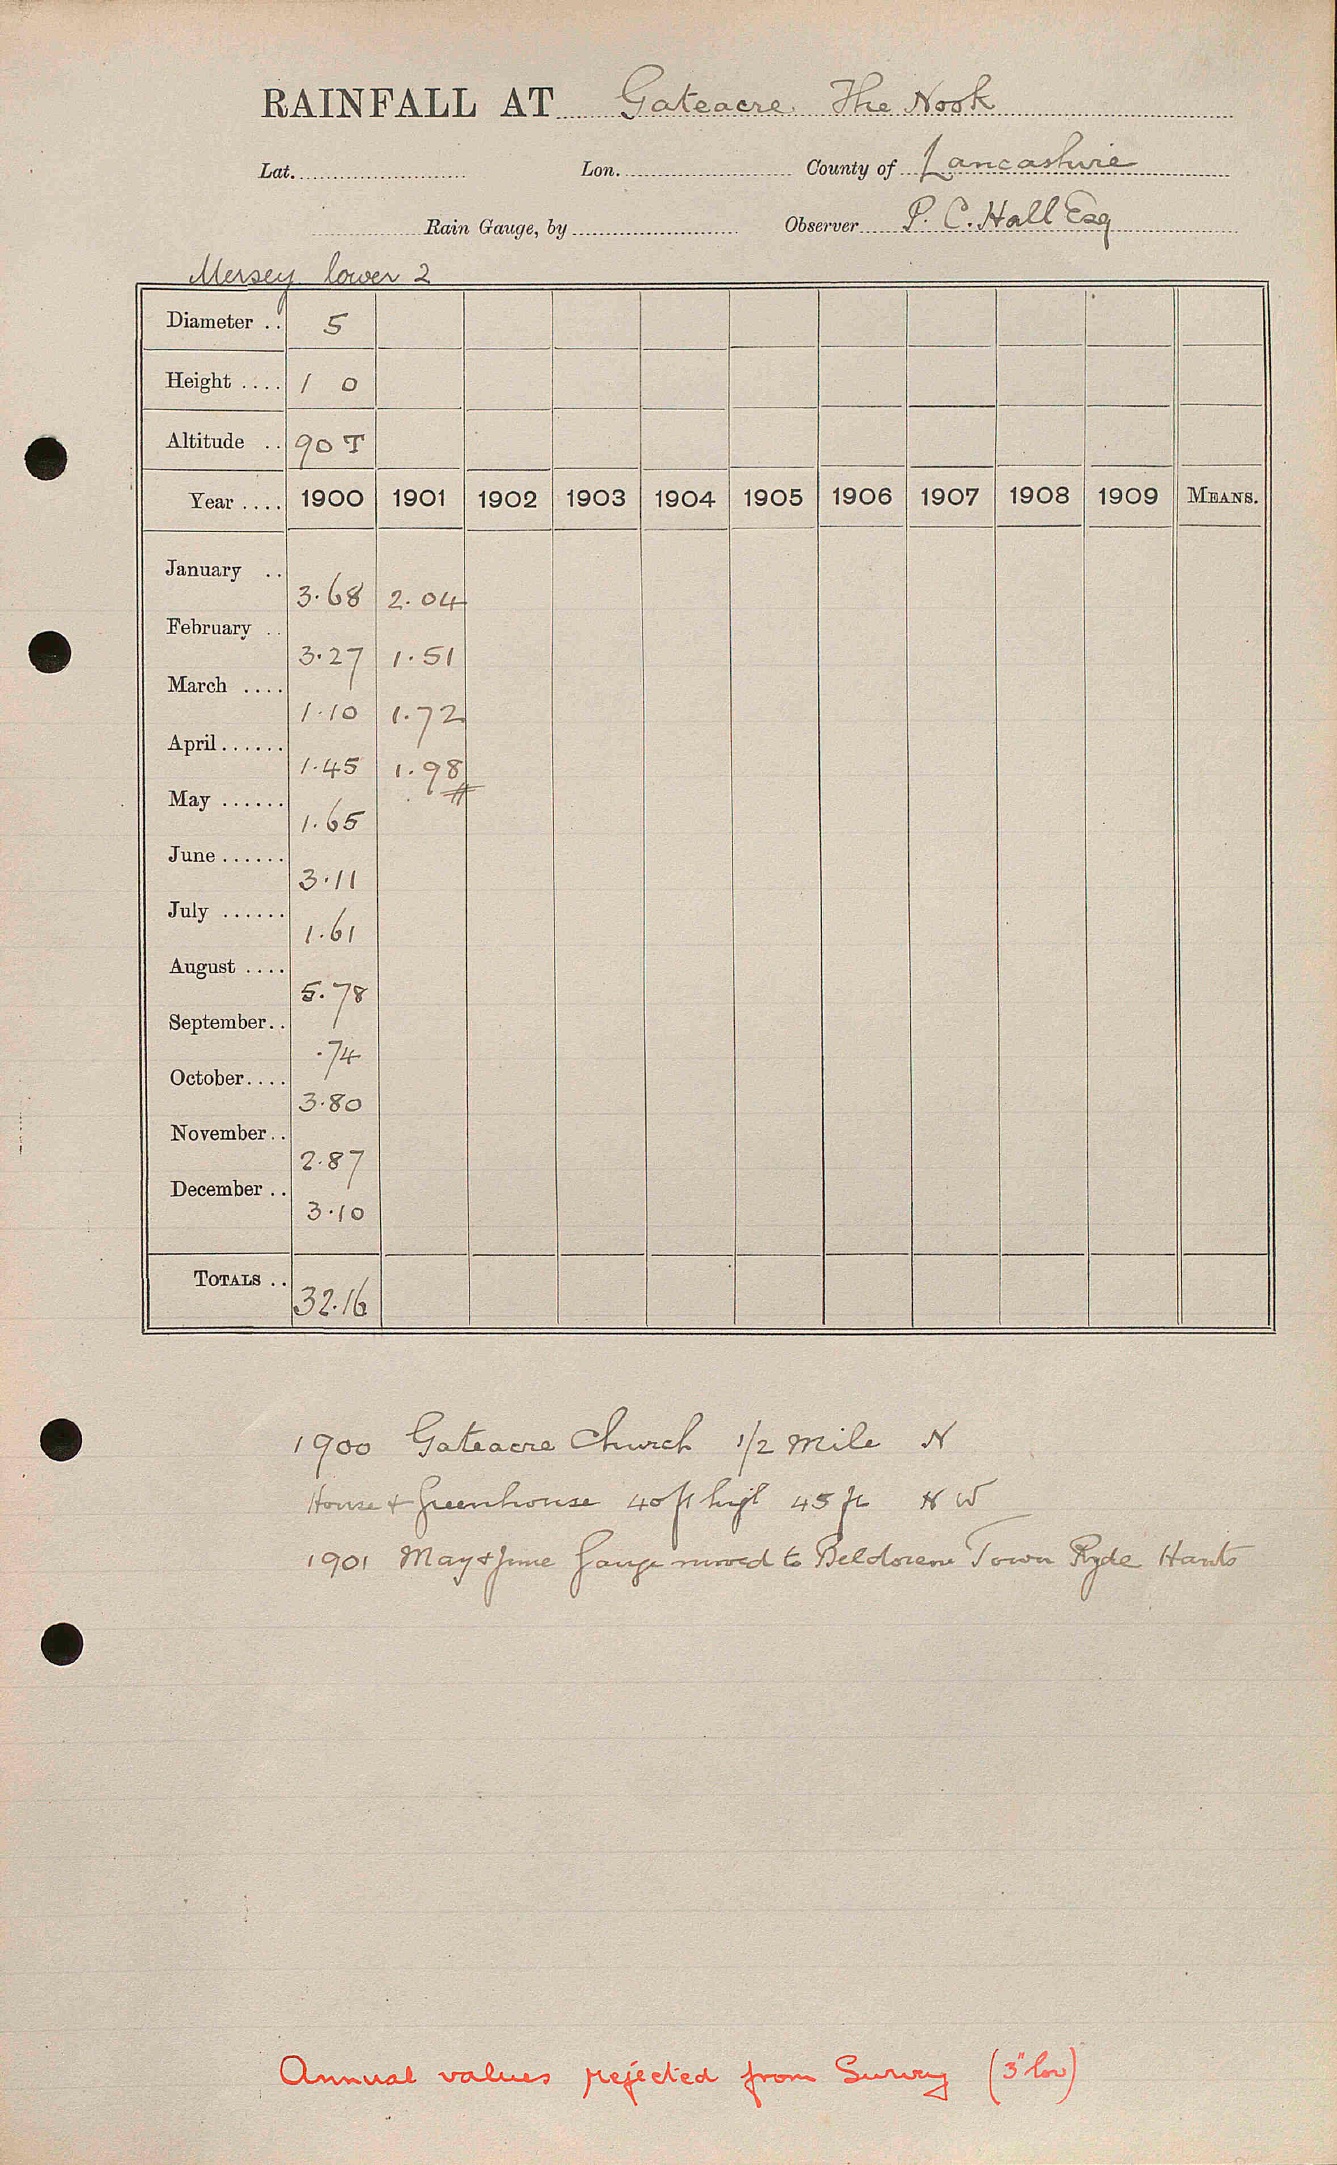 RAINFALL AT Gateacre The Nook
Lat. Lon. County of Lancashire
Rain Gauge, by Observer P. C. Hall Esq
Mersey lower 2
Diameter .. 5
Height .... 1 0
Altitude .. 90 T
Year .... 1900 1901 1902 1903 1904 1905 1906 1907 1908 1909 MEANS.
January .. 3.68 2.04
February .. 3.27 1.51
March .... 1.10 1.72
April...... 1.45 1.98
May ...... 1.65
June ...... 3.11
July ...... 1.61
August .... 5.78
September.. .74
October.... 3.80
November.. 2.87
December .. 3.10
TOTALS .. 32.16
1900 Gateacre Church 1/2 mile N
House & Greenhouse 40 ft high 45 ft N W
1901 May & June Gauge moved to Town Ryde Hants
Annual values rejected from Survey (3" low)